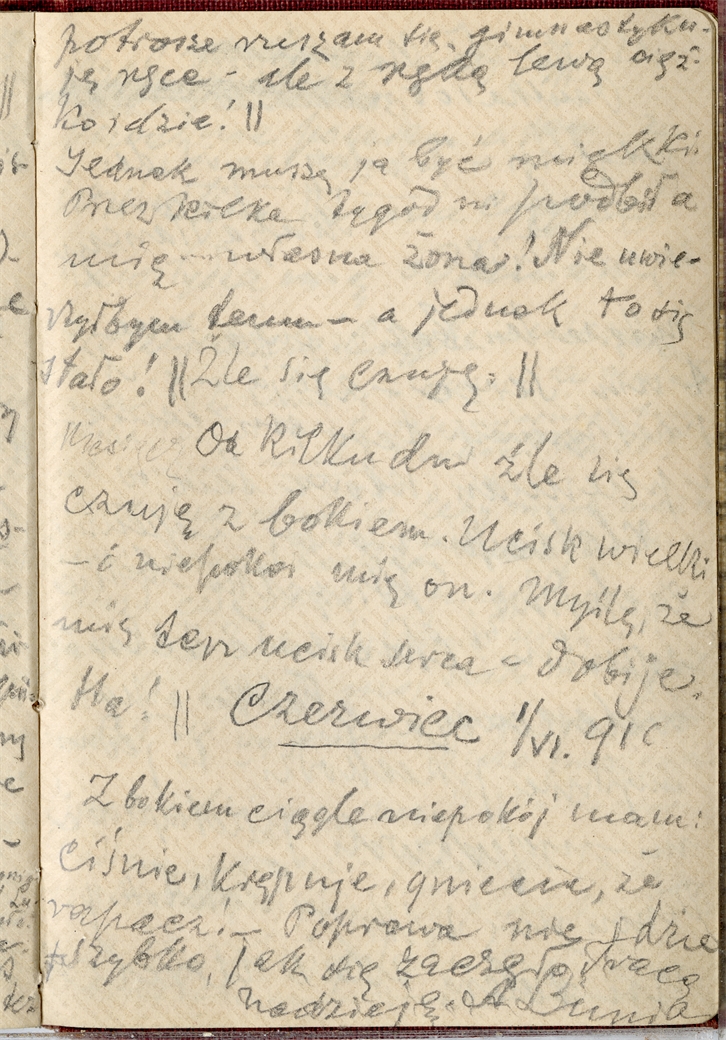 potrosze ruszam się, gimnastyku-
ję ręce - ale z ręką lewą cięż-
ko idzie! ||
Jednak muszę ja być miękki
Przez kilka tygodni podbiła
mię własna żona! Nie uwie-
rzyłbym temu - a jednak to się
stało! || Źle się czuję. ||
Od kilku dni źle się
czuję z bokiem. Ucisk wielki
- i niepokoi mię on. Myślę, że
mię ten ucisk serca - dobije.
Ha! || Czerwiec 1/VI. 910
Z bokiem ciągle niepokój mam:
ciśnie, krępuje, gniecie, że
rozpacz! - Poprawa nie idzie
szybko, jak się zaczęło, tracę
nadzieję. A Bunia